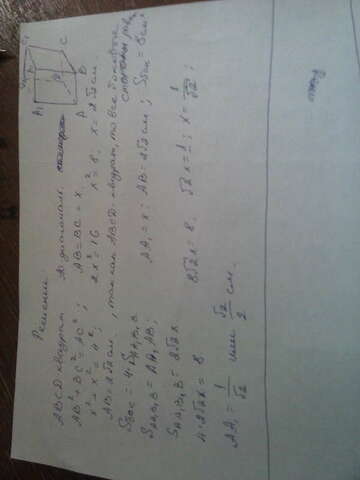 Решение.
ABCD квадрат. AC диагональ.
AB² + BC² = AC²; AB = BC = x.
x² + x² = 4²; 2x² = 16 x² = 8. x = 2√2 см.
AB = 2√2 см, так как ABCD - квадрат, то все стороны равны
Sбок = 4·SAA₁B₁B Sбок = 8 см²
SAA₁B₁B = AA₁·AB; AA₁ = x; AB = 2√2 см;
SAA₁B₁B = 2√2x
4·2√2x = 8 8√2x = 8. √2x = 1; x = 1/√2;
AA₁ = 1/√2 или √2/2 см.
A₁
A
B
C